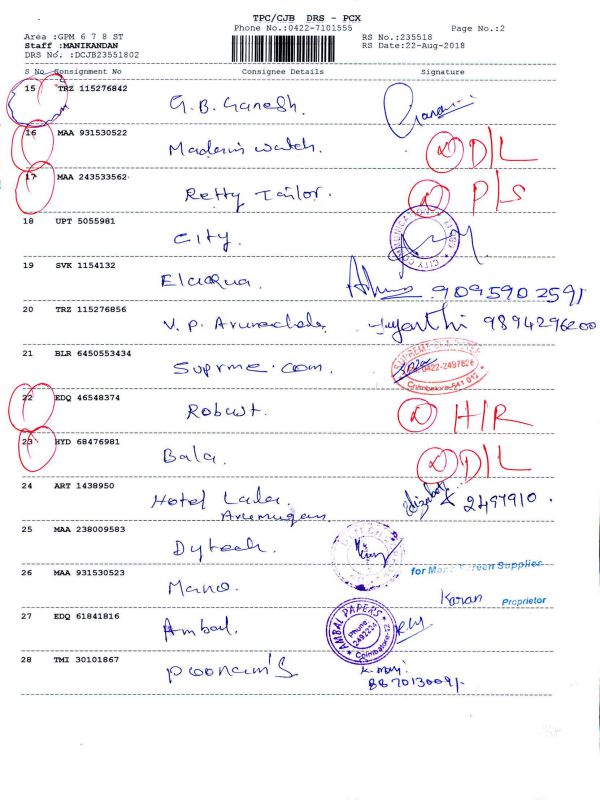 TPC/CJB DRS - PCX
Phone No.:0422-7101555 Page No.:2
Area :GPM 6 7 8 ST RS No.:235518
Staff :MANIKANDAN RS Date:22-Aug-2018
DRS No. :DCJB23551802
S No Consignment No Consignee Details Signature
15 TRZ 115276842 G.B. Ganesh.
16 MAA 931530522 Modern watch. D/L
17 MAA 243533562 Retty Tailor. P/S
18 UPT 5055981 City.
19 SVK 1154132 Elaqua. 9095902591
20 TRZ 115276856 V.P. Arunachala Jayanthi 9894296200
21 BLR 6450553434 Suprme.com. 0422-2497826 Coimbatore-641 012
22 EDQ 46548374 Robust. H/R
23 HYD 68476981 Bala. D/L
24 ART 1438950 Hotel Lala Arumugam 2497910.
25 MAA 238009583 Dytech.
26 MAA 931530523 Mano. for Mano Screen Supplies
Karan Proprietor
27 EDQ 61841816 Ambal. AMBAL PAPERS Phone Coimbatore-12
28 TMI 30101867 Poonam's K. Mani
8870130091-